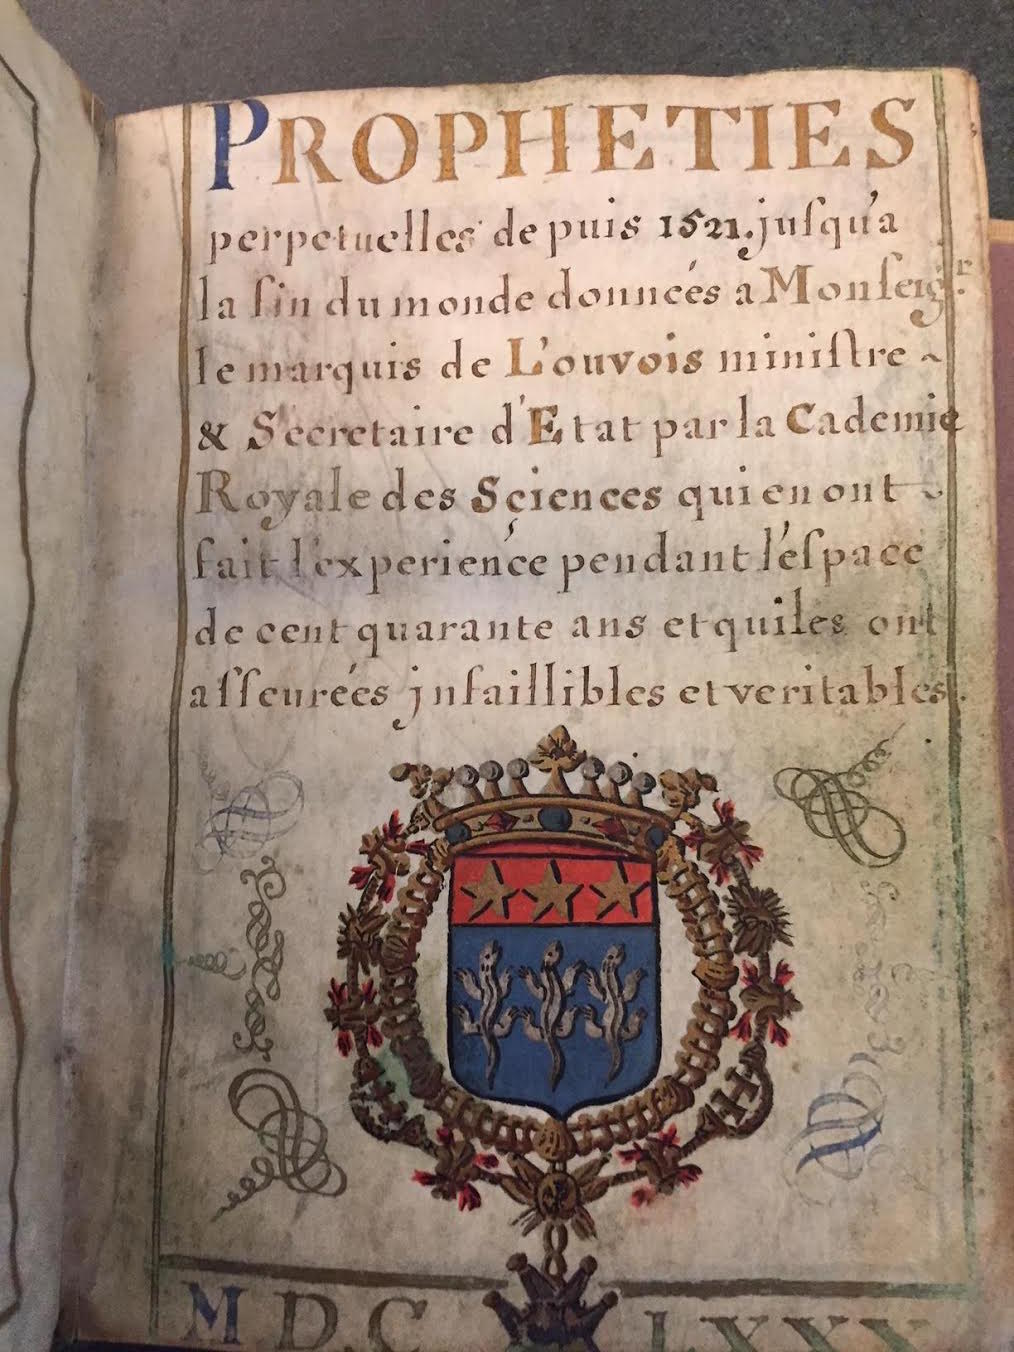 PROPHETIES
perpetuelles de puis 1521. juſqu'a
la fin du monde donneés a Monſeigr.
le marquis de L'ouvois miniſtre ~
& Secretaire d'Etat par la Cademie
Royale des Sçiences qui en ont ~
fait l'experiençe pendant l'éſpace
de cent quarante ans et quiles ont
aſſeureés jnfaillibles et veritables.
MDC LXXX